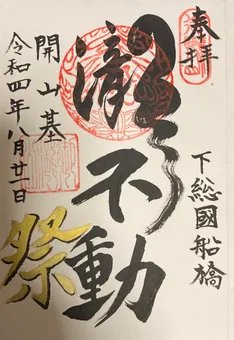 奉拝
下総國船橋
瀧不動
祭
開山基
令和四年八月廿一日